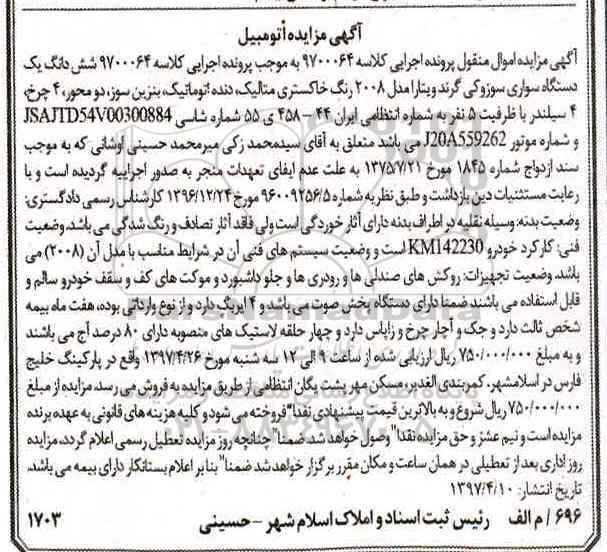 آگهی مزایده اتومبیل
آگهی مزایده اموال منقول پرونده اجرایی کلاسه ۹۷۰۰۰۶۴ به موجب پرونده اجرایی کلاسه ۹۷۰۰۰۶۴ شش دانگ یک
دستگاه سواری سوزوکی گرند ویتارا مدل ۲۰۰۸ رنگ خاکستری متالیک، دنده اتوماتیک، بنزین سوز، دو محور، ۴ چرخ،
۴ سیلندر با ظرفیت ۵ نفر به شماره انتظامی ایران ۴۴ – ۴۵۸ ی ۵۵ شماره شاسی JSAJTD54V00300884
و شماره موتور J20A559262 می باشد متعلق به آقای سیدمحمد زکی میرمحمد حسینی اوشانی که به موجب
سند ازدواج شماره ۱۸۴۵ مورخ ۱۳۷۵/۷/۲۱ به علت عدم ایفای تعهدات منجر به صدور اجراییه گردیده است و با
رعایت مستثنیات دین بازداشت و طبق نظریه شماره ۹۶۰۰۹۲۵۶/۵ مورخ ۱۳۹۶/۱۲/۲۴ کارشناس رسمی دادگستری:
وضعیت بدنه: وسیله نقلیه در اطراف بدنه دارای آثار خوردگی است ولی فاقد آثار تصادف و رنگ شدگی می باشد. وضعیت
فنی: کارکرد خودرو KM142230 است و وضعیت سیستم های فنی آن در شرایط مناسب با مدل آن (۲۰۰۸) می
باشد. وضعیت تجهیزات: روکش های صندلی ها و رودری ها و جلو داشبورد و موکت های کف و سقف خودرو سالم و
قابل استفاده می باشند ضمنا دارای دستگاه پخش صوت می باشد و ۴ ایربگ دارد و از نوع وارداتی بوده، هفت ماه بیمه
شخص ثالث دارد و جک و آچار چرخ و زاپاس دارد و چهار حلقه لاستیک های منصوبه دارای ۸۰ درصد آج می باشند
و به مبلغ ۷۵۰/۰۰۰/۰۰۰ ریال ارزیابی شده از ساعت ۹ الی ۱۲ سه شنبه مورخ ۱۳۹۷/۴/۲۶ واقع در پارکینگ خلیج
فارس در اسلامشهر، کمربندی الغدیر، مسکن مهر پشت یگان انتظامی از طریق مزایده به فروش می رسد مزایده از مبلغ
۷۵۰/۰۰۰/۰۰۰ ریال شروع و به بالاترین قیمت پیشنهادی نقدا" فروخته می شود و کلیه هزینه های قانونی به عهده برنده
مزایده است و نیم عشر و حق مزایده نقدا" وصول خواهد شد. ضمنا" چنانچه روز مزایده تعطیل رسمی اعلام گردد، مزایده
روز اداری بعد از تعطیلی در همان ساعت و مکان مقرر برگزار خواهد شد ضمنا" بنا بر اعلام بستانکار دارای بیمه می باشد.
تاریخ انتشار: ۱۳۹۷/۴/۱۰
۶۹۶/ م الف رئیس ثبت اسناد و املاک اسلام شهر – حسینی ۱۷۰۳